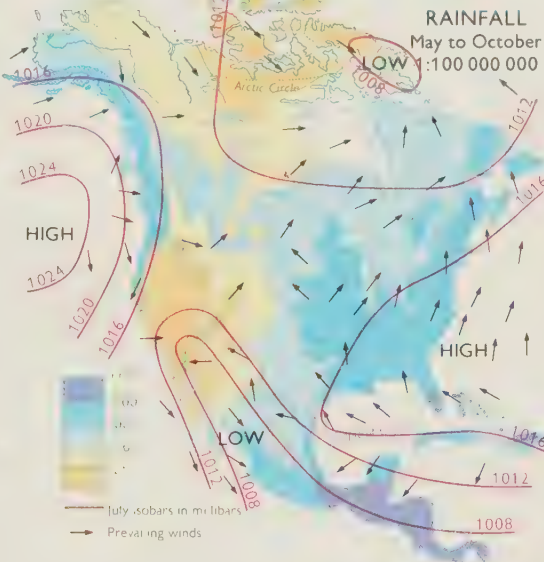 RAINFALL
May to October
1:100 000 000
LOW
1008
1012
Arctic Circle
1012
1016
1020
1016
1024
HIGH
1024
1020
1016
HIGH
LOW
1016
1012
1012
1008
1008
July isobars in millibars
Prevailing winds